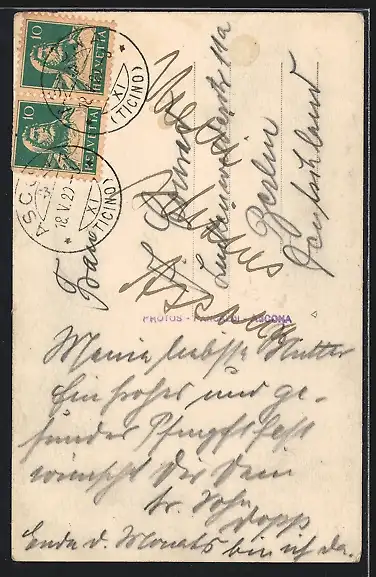 10
HELVETIA
10
HELVETIA
ASCONA
18.V.29
XI
(TICINO)
XI
(TICINO)
Frau
Berlin
Deutschland
Ascona
PHOTOS - - ASCONA
Meine liebste Mutter
Ein frohes und ge-
sundes Pfingstfest
wünscht Dir Dein
tr. Sohn
Ende d. Monats bin ich da.